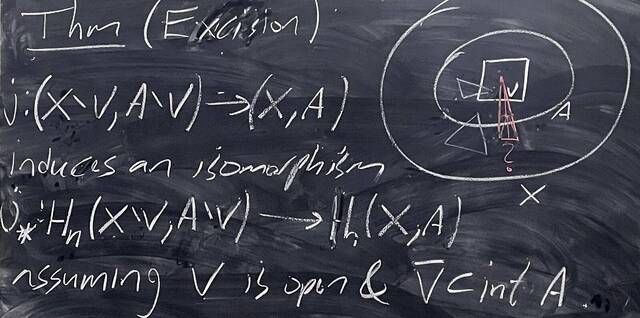 Thm (Excision)
j: (X\V, A\V) → (X, A)
induces an isomorphism
j_*: H_n(X\V, A\V) → H_n(X, A)
assuming V is open & V̅ ⊂ int A.
V
A
?
X